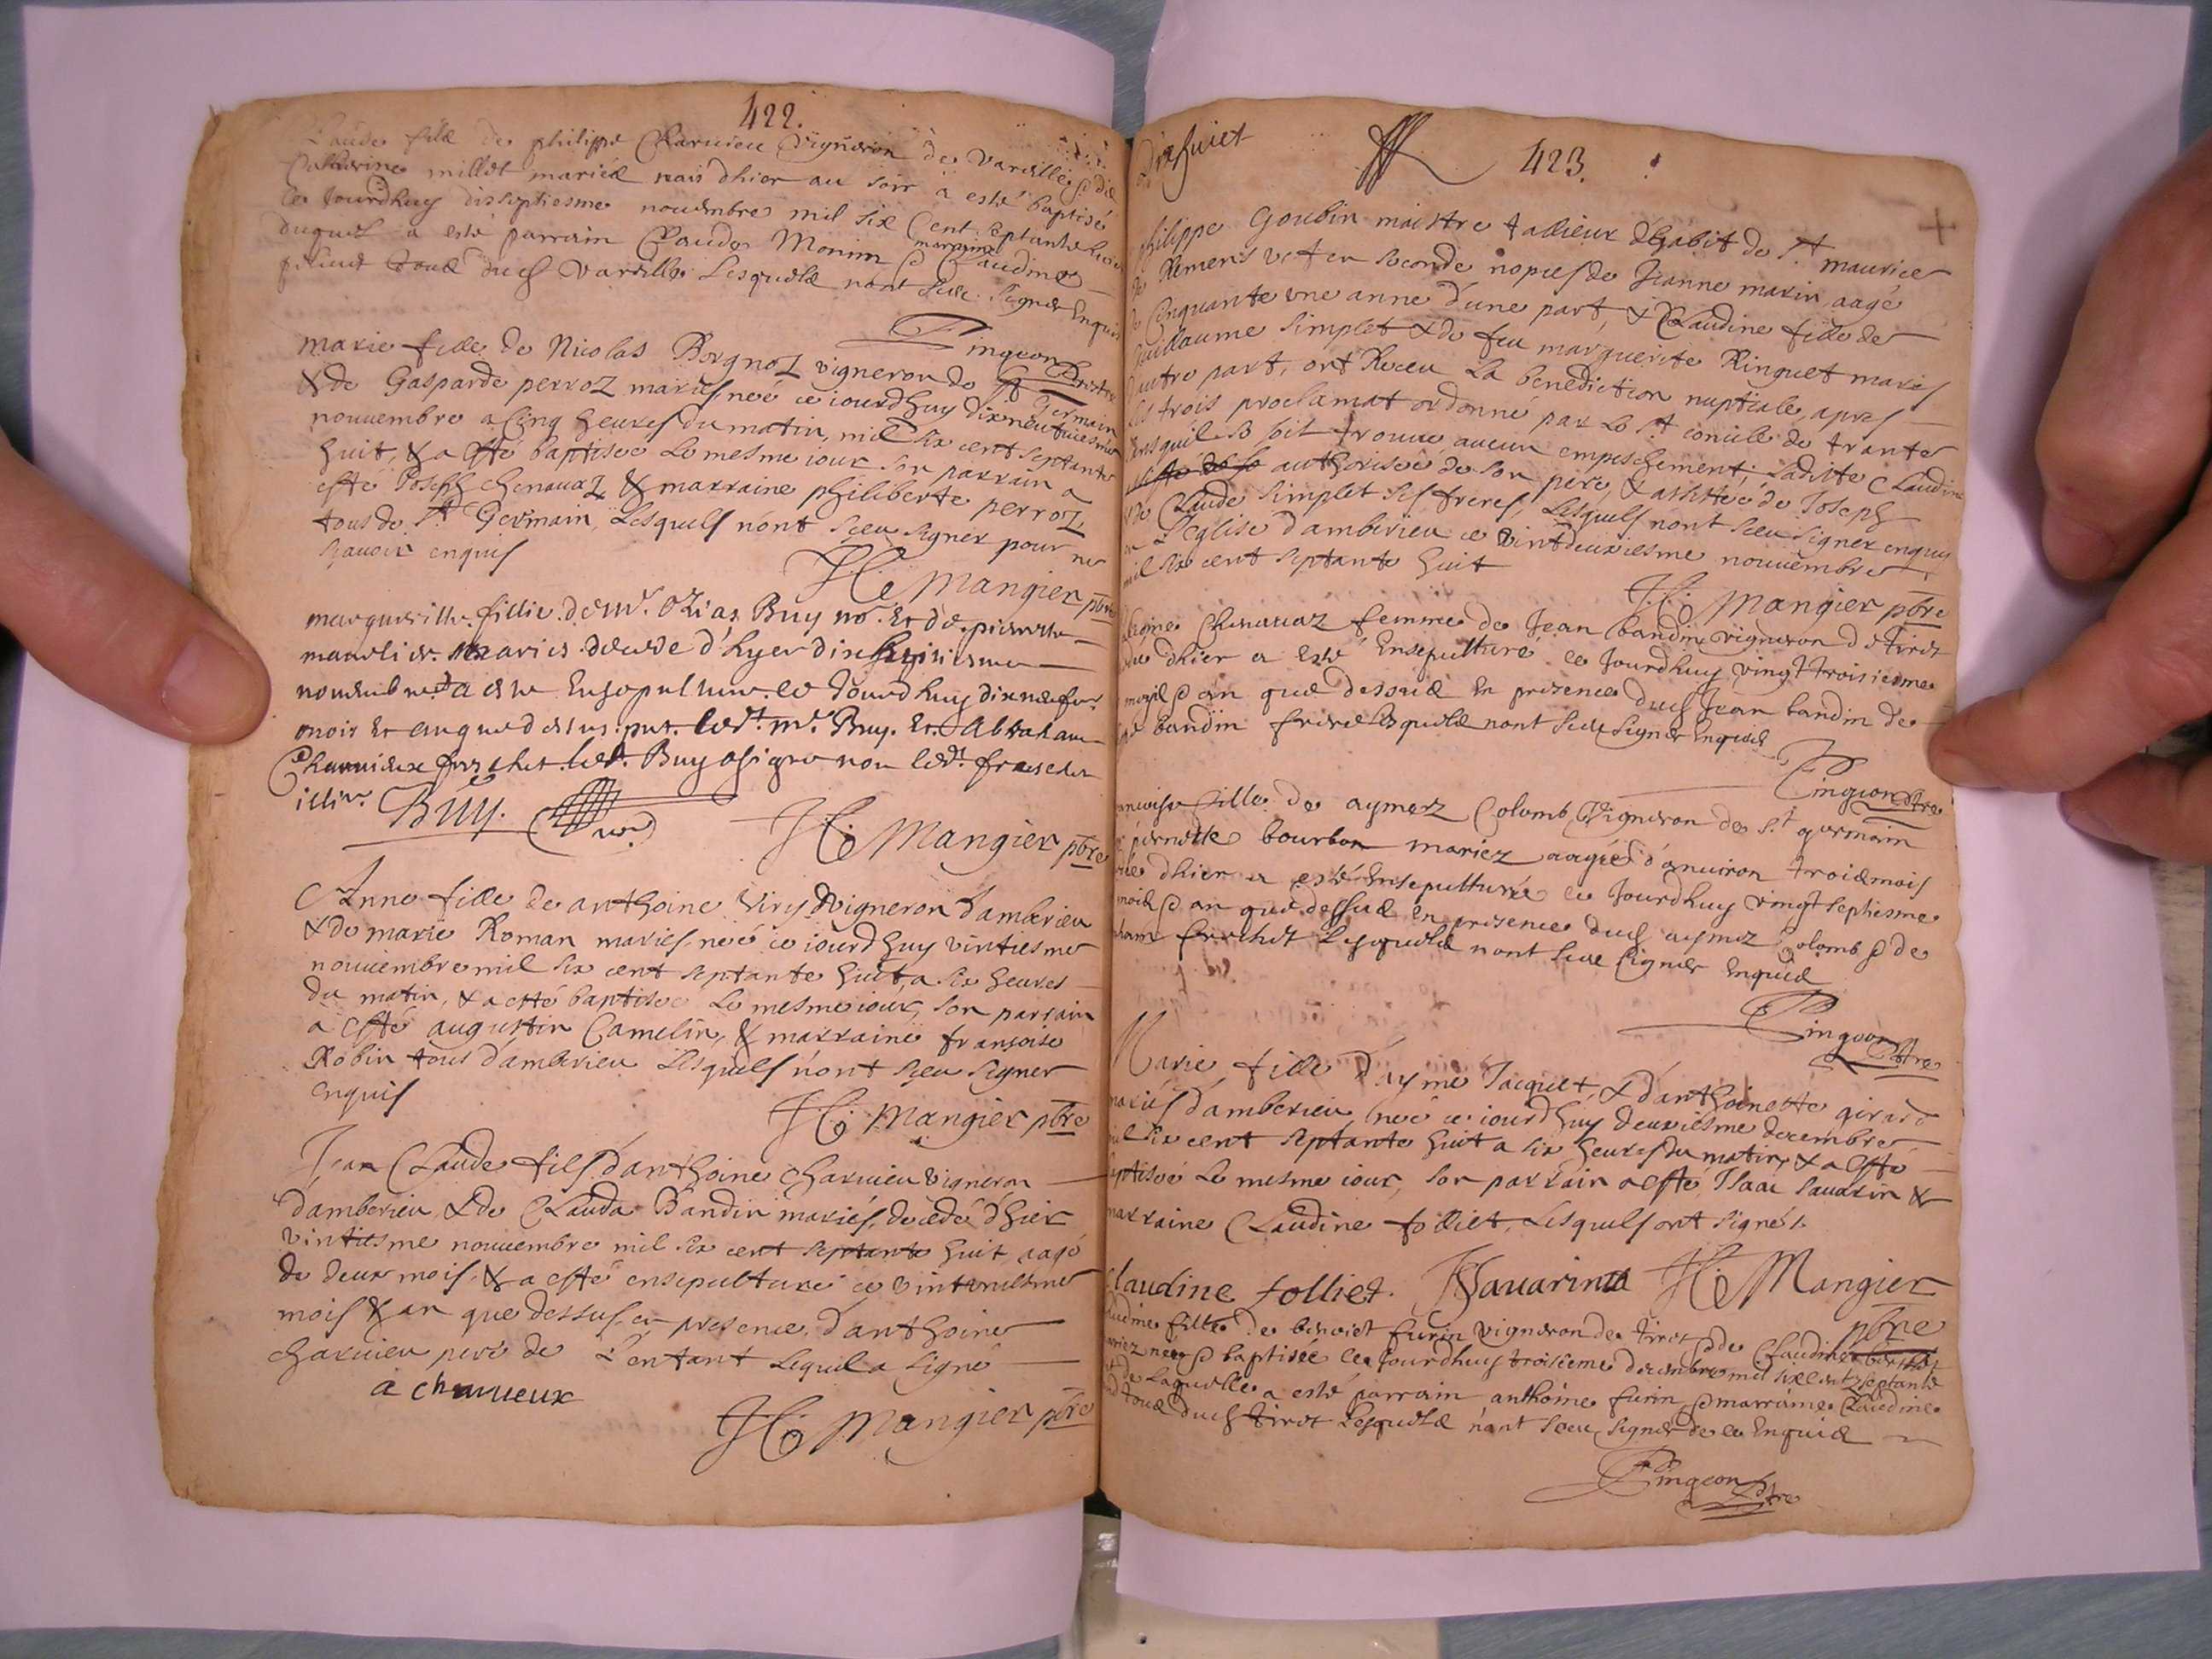 422.
Claude filz de philippe Charvieu vigneron de vareilles & de
Catherine millet mariés nais dhier au soir a esté baptisé
ce Jourdhuy dixseptiesme novembre mil six Cent septante huict
duquel a esté parrain Claude Monin & marraine Claudine
tous dud vareilles Lesquelz nont sceu signer Enquis
Pingeon Pbtre
marie fille de Nicolas Borgnoz vigneron de St Germain
& de Gasparde perroz mariés, neé ce iourdhuy dixneufuiesme
nouuembre a cinq heures du matin, mil six cent septante
huit, & a esté baptiseé le mesme iour son parrain a
esté Joseph chenauaz & marraine philiberte perroz,
tous de St Germain, Lesquels n'ont sceu signer pour ne
sçauoir enquis
H: Mangier pbre
margueritte fillie de Mr. Ozias Buy no.re Et de pierrette
mariés decede d'hyer dixhuictiesme
novembre & a este Ensepulture ce Jourdhuy dixneufme
mois Et anque dessus pnt. led.t mr. Buy. Et Abraham
Charvieux led. Buy a signe non led.t
illire. Buy.
H: Mangier pbre
Anne fille de anthoine Viry vigneron d'amberieu
& de marie Roman mariés, neé ce iourdhuy vintiesme
nouuembre mil six cent septante huit, a six heures
du matin, & a esté baptiseé le mesme iour, son parrain
a esté augustin Camelin, & marraine françoise
Robin tous d'amberieu Lesquels n'ont sceu signer
enquis
H: Mangier pbre
Jean Claude fils d'anthoine charuieu vigneron
d'amberieu, & de Clauda Bandin mariés, decedé d'hier
vintiesme nouuembre mil six cent septante huit, aagé
de deux mois, & a esté ensepulturé ce vintunieme
mois & an que dessus, en presence d'anthoine
charuieu pere de L'enfant Lequel a signé
a charueux
H: Mangier pbre
423.
philippe Goubin maistre tallieur d'habit de St maurice
de Remens vef en seconde nopces de Jeanne marin aagé
de cinquante une anne d'une part, & Claudine fille de
Guillaume simplet & de feu marguerite Ringuet mariés
d'autre part, ont Receu La benediction nuptiale, apres
les trois proclamat ordonné par Le St concile de trante
sans quil se soit trouué aucun empeschement, Ladite Claudine
authoriseé de son pere, & assisteé de Joseph
& de Claude simplet ses freres, Lesquels nont sceu signer enquis
en L'eglise d'amberieu ce vintdeuxiesme nouuembre
mil six cent septante huit
H: Mangier pbre
Chenauaz femme de Jean bandin vigneron de tiret
dhier a esté Ensepulturé ce Jourdhuy vingt troisiesme
mois & an que dessus En presence dud Jean bandin & de
bandin frere Lesquelz nont sceu signer Enquis
Pingeon Pbtre
francoise fille de aymez Colomb, Vigneron de St germain
& pernette bourbon mariez aagée d'anuiron troismois
dhier a esté Ensepulturée ce Jourdhuy vingt septiesme
mois & an que dessus en presence dud aymez Colomb & de
Lesquelz nont sceu signer Enquis
Pingeon Pbtre
Marie fille d'ayme Jacquet, & d'anthoinette girard
mariés d'amberieu, neé ce iourdhuy deuxiesme decembre
mil six cent septante huit a six heures du matin, & a esté
baptiseé Le mesme iour, son parrain a esté Isaac sauarin &
marraine Claudine folliet, Lesquels ont signés.
Claudine folliet. JSauarin H: Mangier
pbre
Claudine fille de benoict furin vigneron de tiret & de Claudine
mariez neé & baptisée ce Jourdhuy troisieme decembre mil six cent septante
Laquelle a esté parrain anthoine furin & marraine Claudine
tous dud tiret Lesquelz n'ont sceu signer de ce Enquis
Pingeon Pbtre